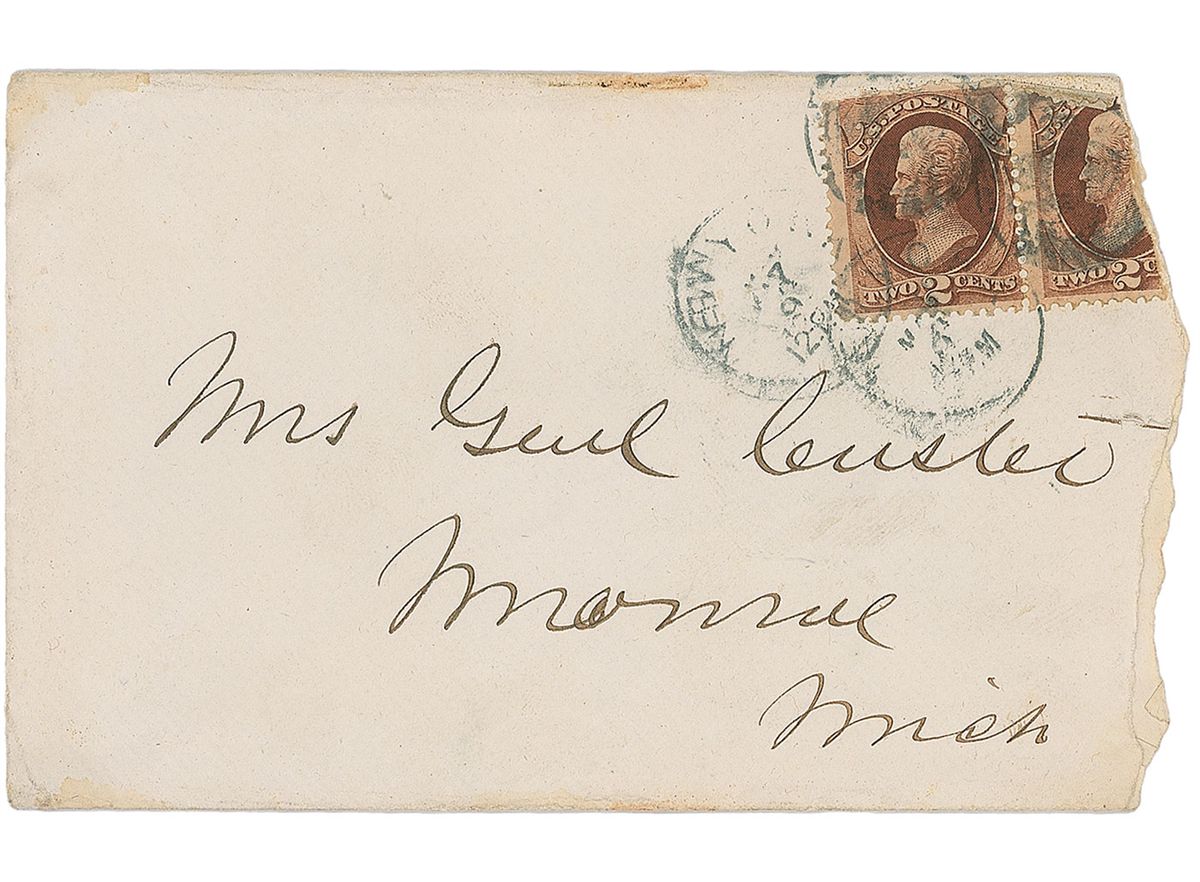 U.S. POSTAGE
TWO 2 CENTS
TWO 2 C
NEW YORK
12 PM
Mrs Genl Custer
Monroe
Mich